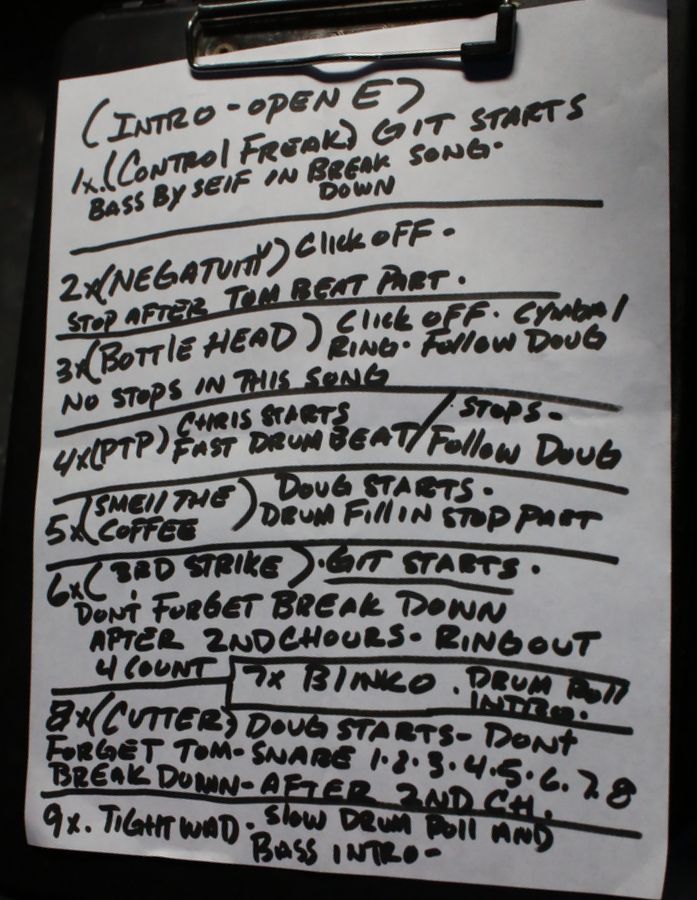 (INTRO - OPEN E)
1x. (CONTROL FREAK) GIT STARTS
BASS BY SELF IN BREAK SONG.
DOWN
2x (NEGATUITY) Click OFF.
STOP AFTER TOM BEAT PART.
3x (BOTTLE HEAD) Click OFF. CYMBAL
RING. Follow DOUG
NO STOPS IN THIS SONG
4x (PTP) CHRIS STARTS / STOPS -
FAST DRUM BEAT / Follow DOUG
5x (SMELL THE COFFEE) DOUG STARTS.
DRUM Fill IN STOP PART
6x (3RD STRIKE) . GIT STARTS .
DONT FORGET BREAK DOWN
AFTER 2ND CHOURS - RING OUT
4 COUNT
7x BLINKO . DRUM Roll
INTRO.
8x (CUTTER) DOUG STARTS - DONT
FORGET TOM - SNARE 1.2.3.4.5.6.7.8
BREAK DOWN - AFTER 2ND CH.
9x. TIGHT WAD - SLOW DRUM Roll AND
BASS INTRO -